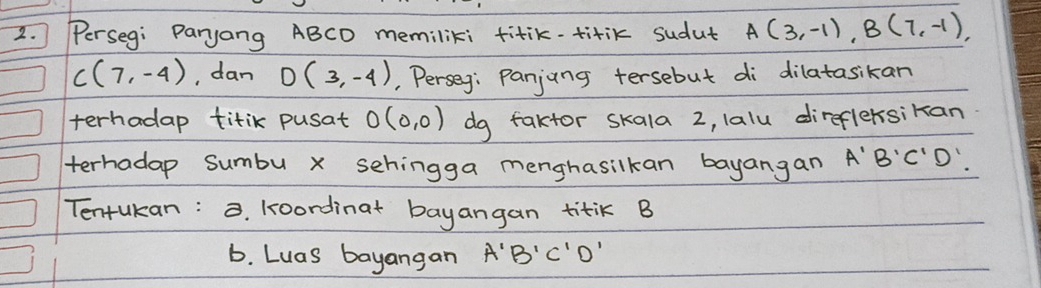 2. Persegi Panjang ABCD memiliki titik-titik sudut A(3,-1), B(7,-1),
C(7,-4), dan D(3,-4), Persegi Panjang tersebut di dilatasikan
terhadap titik pusat O(0,0) dg faktor skala 2, lalu direfleksikan
terhadap Sumbu x sehingga menghasilkan bayangan A'B'C'D'.
Tentukan : a. Koordinat bayangan titik B
b. Luas bayangan A'B'C'D'